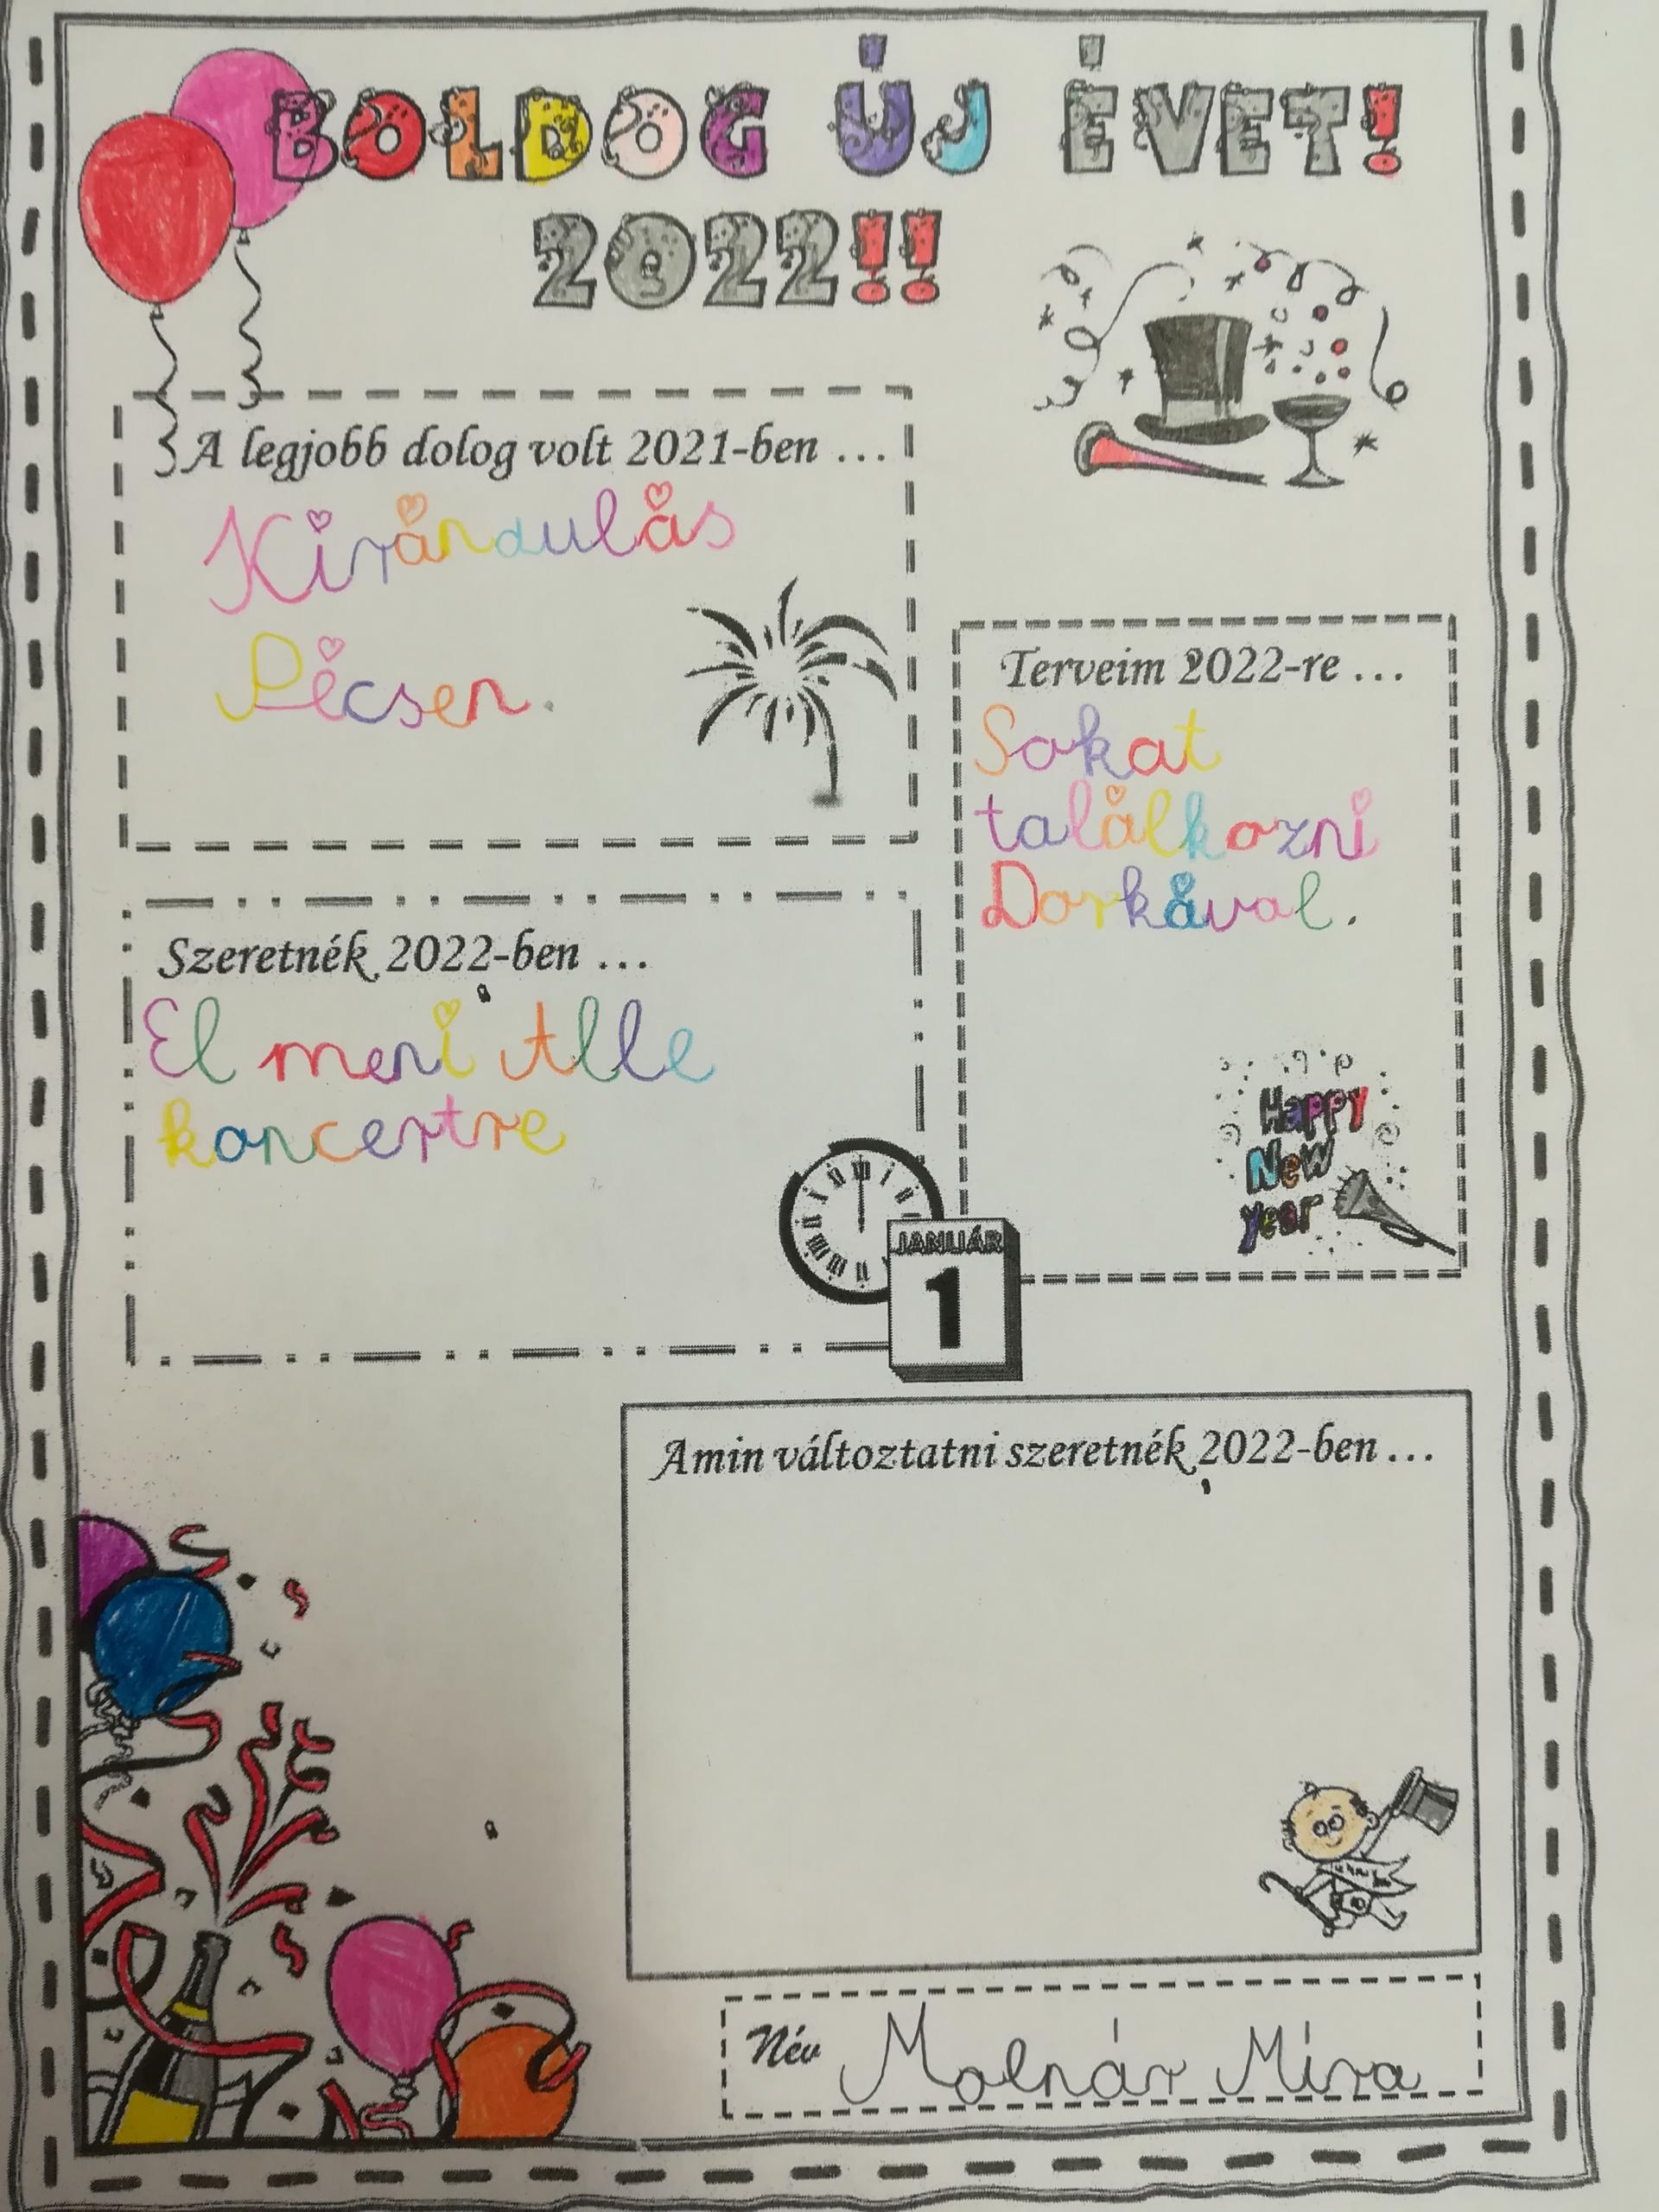 BOLDOG ÚJ ÉVET!
2022!!
A legjobb dolog volt 2021-ben ...
Kirándulás
Pécsen.
Terveim 2022-re ...
Sokat
találkozni
Dorkával.
Szeretnék 2022-ben ...
El meni Alle
koncertre
Happy
New
year
JANUÁR
1
Amin változtatni szeretnék 2022-ben ...
Név Molnár Míra